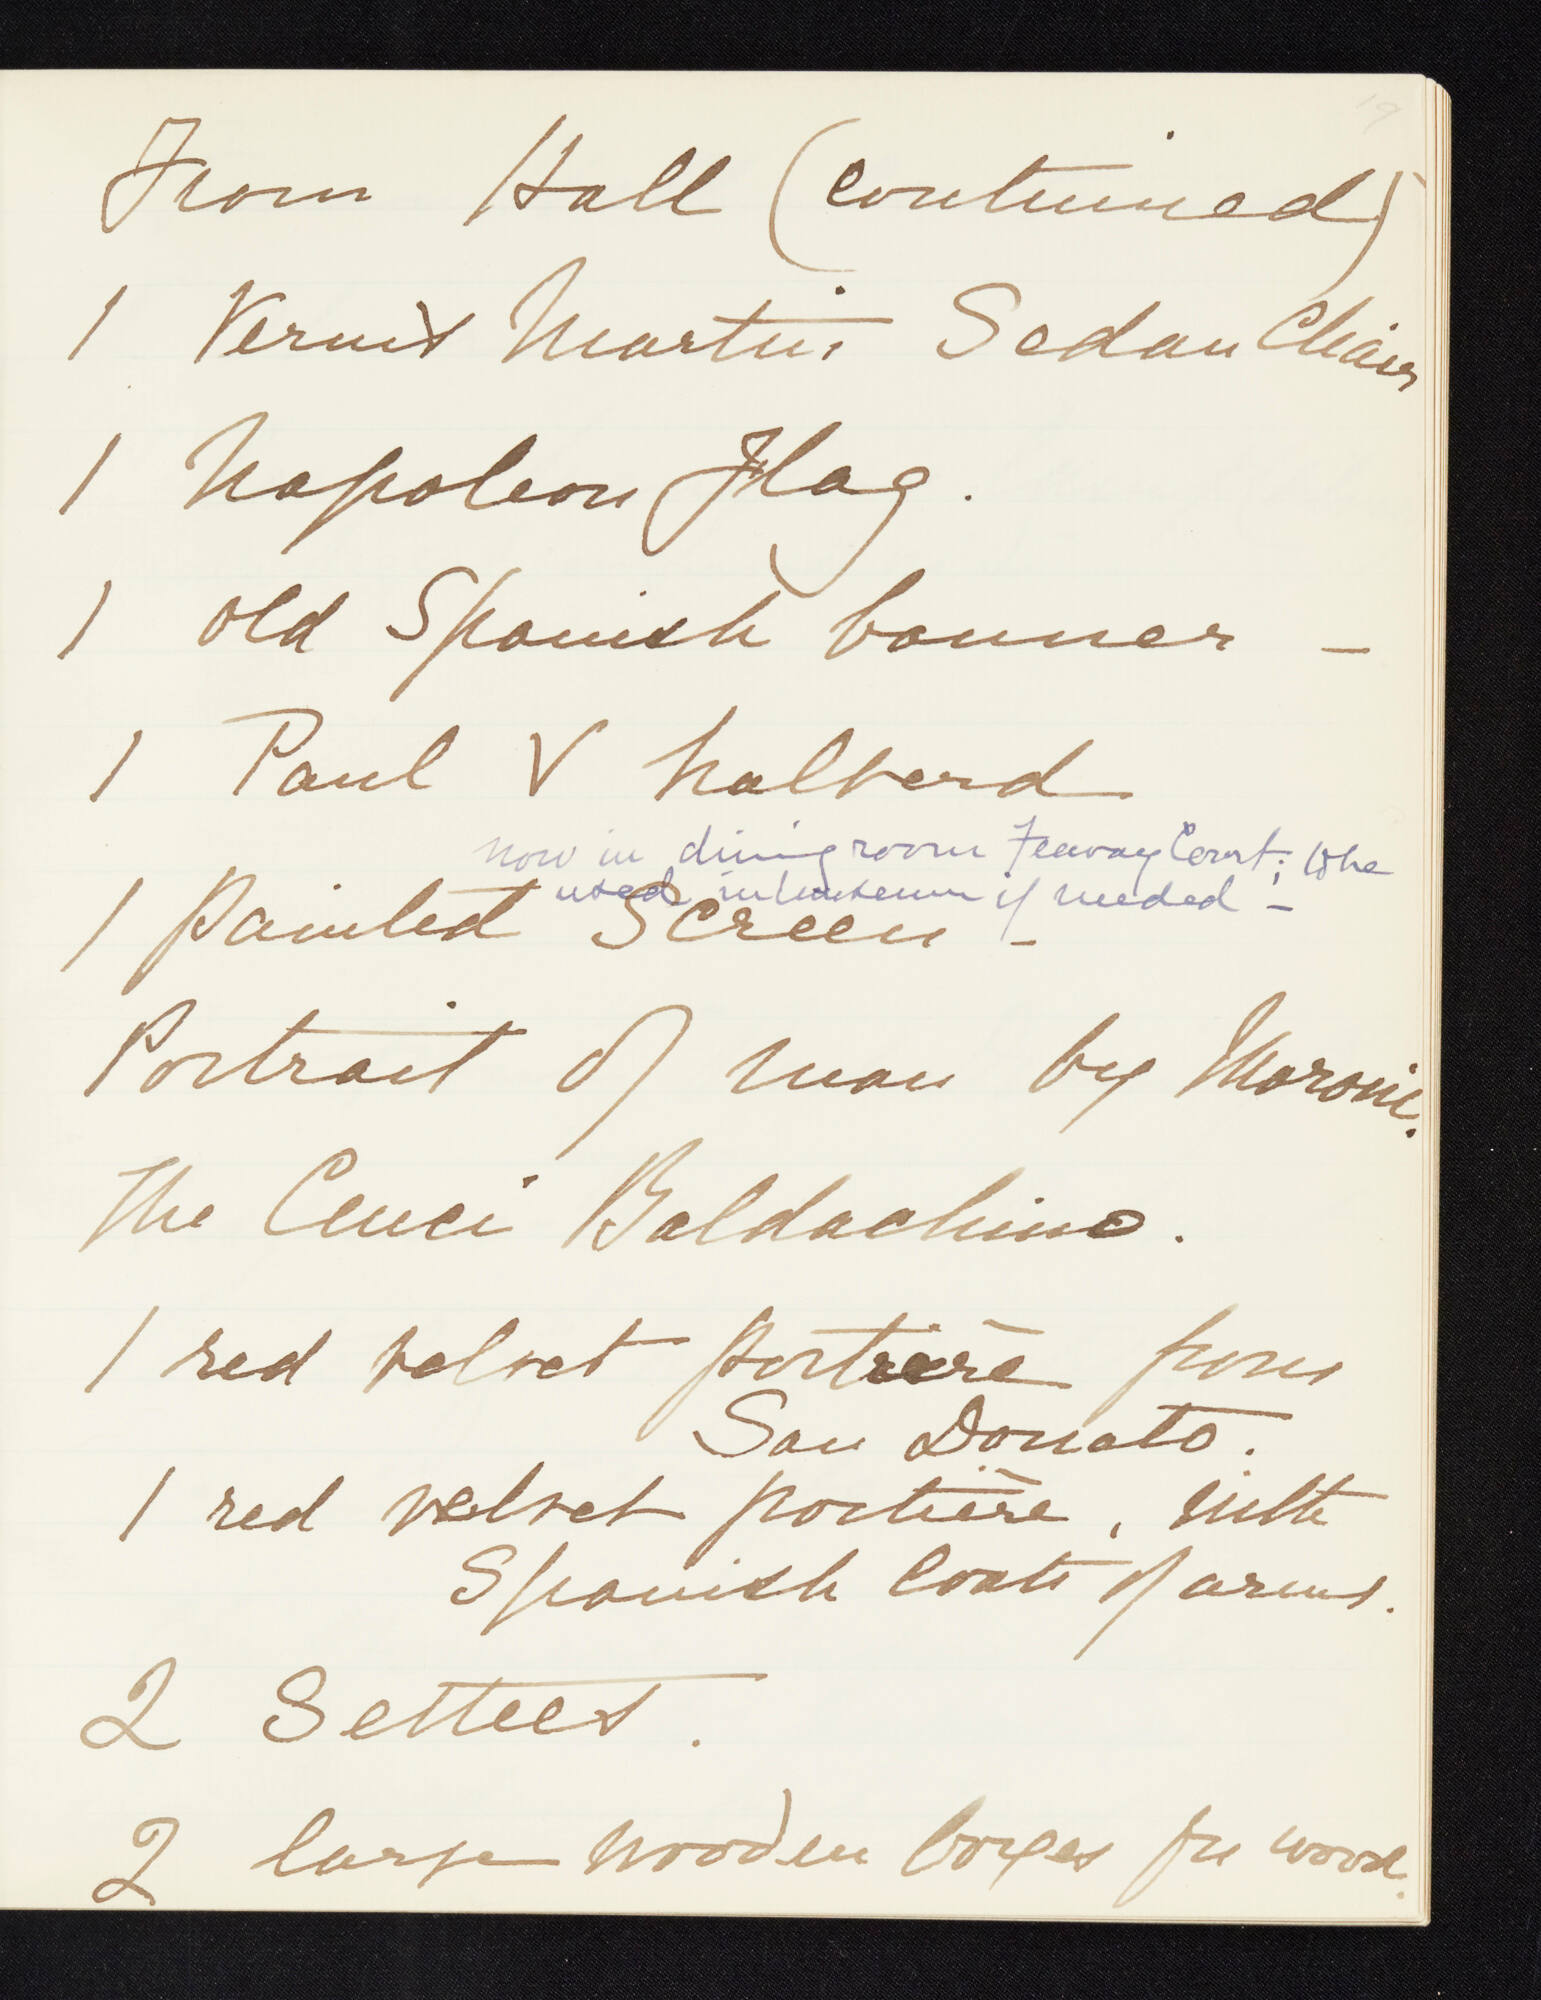 19
From Hall (continued)
1 Vernis Martin Sedan Chair
1 Napoleon Flag.
1 old Spanish banner –
1 Paul V halberd
now in dining room Fenway Court; to be
used in Museum if needed –
1 painted Screen –
Portrait of man by Moroni.
The Cenci Baldachino.
1 red velvet portière from
San Donato.
1 red velvet portière, with
Spanish Coats of arms.
2 Settees.
2 large wooden boxes for wood.